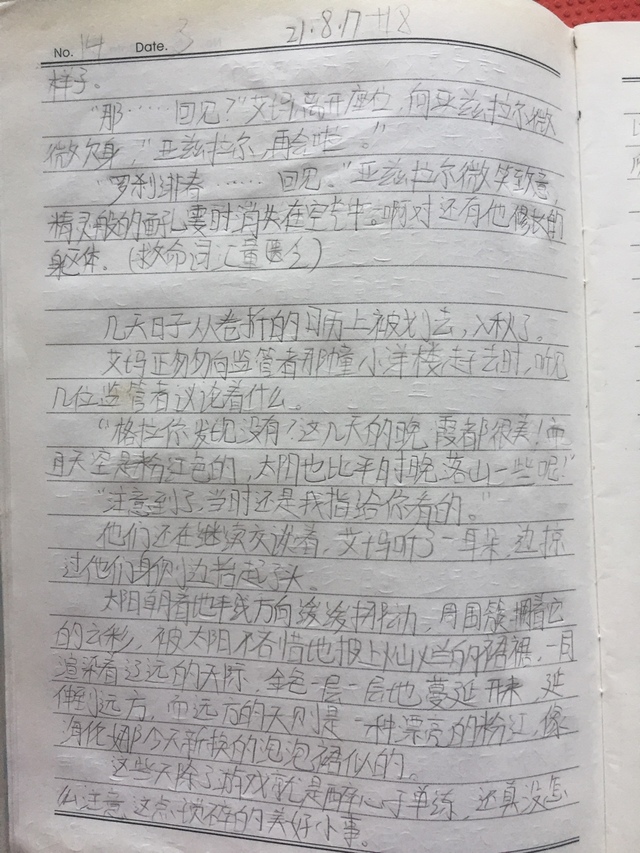 No. 14 Date. 3 21.8.17
样子。
"那……回见?"艾玛离开座位,向亚兹拉尔微
微欠身,"亚兹拉尔,再会啦。"
"罗刹绯春……回见。"亚兹拉尔微笑致意,
精灵般的面孔霎时消失在空气中。啊对还有他修长的
躯体。(救命词汇量匮乏)
几天日子从卷折的日历上被划去,入秋了。
艾玛正匆匆向监管者那幢小洋楼走去时,听见
几位监管者议论着什么。
"格拉你发现没有?这几天的晚霞都很美!而
且天空是粉红色的,太阳也比平时晚落山一些呢!"
"注意到了,当时还是我指给你看的。"
他们还在继续交谈着,艾玛听了一耳朵,边掠
过他们身侧边抬起了头。
太阳朝着地平线方向缓缓挪动,周围簇拥着它
的云彩,被太阳不吝惜地披上灿烂的裙裾,一同
渲染着辽远的天际,金色一层一层地蔓延开来,延
伸到远方,而远方的天则是一种漂亮的粉红,像
海伦娜今天新换的泡泡裙似的。
这些天除了游戏就是醉心于单练,还真没怎
么注意这点琐碎的美好小事。